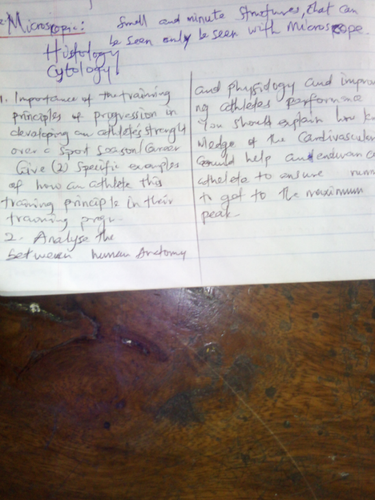 Microscopic: Small and minute Structures, that can
be seen only be seen with Microscope.
Histology
Cytology
1. Importance of the training
principles of progression in
developing an athlete's strenght
over a sport season/career
Give (2) Specific examples
of how an athlete this
training principle in their
training progr.
2. Analyse the
between human Anatomy
and physiology and improvi
ng athletes performance
You should explain how kno
wledge of the Cardivascular
could help an endurance
athelete to ensure runn
to get to the maximum
peak.